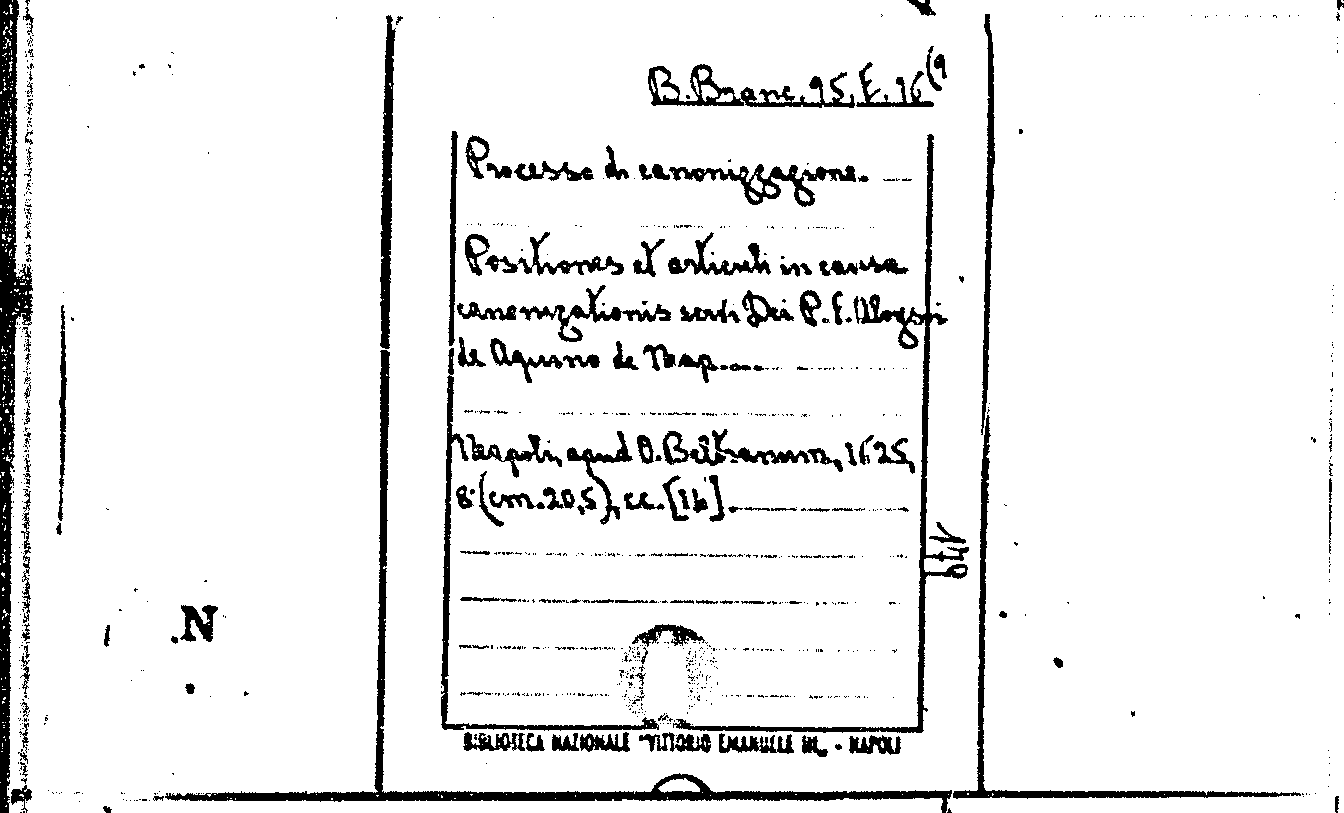 B. Branc. 95. E. 16 (9
Processo di canonizzazione.
Positiones et articuli in causa
canonizationis servi Dei P. F. Aloysii
de Aquino de Neap....
Neapoli, apud O. Beltranum, 1625,
8° (cm. 20,5), cc. [16].
N
BIBLIOTECA NAZIONALE "VITTORIO EMANUELE III" - NAPOLI